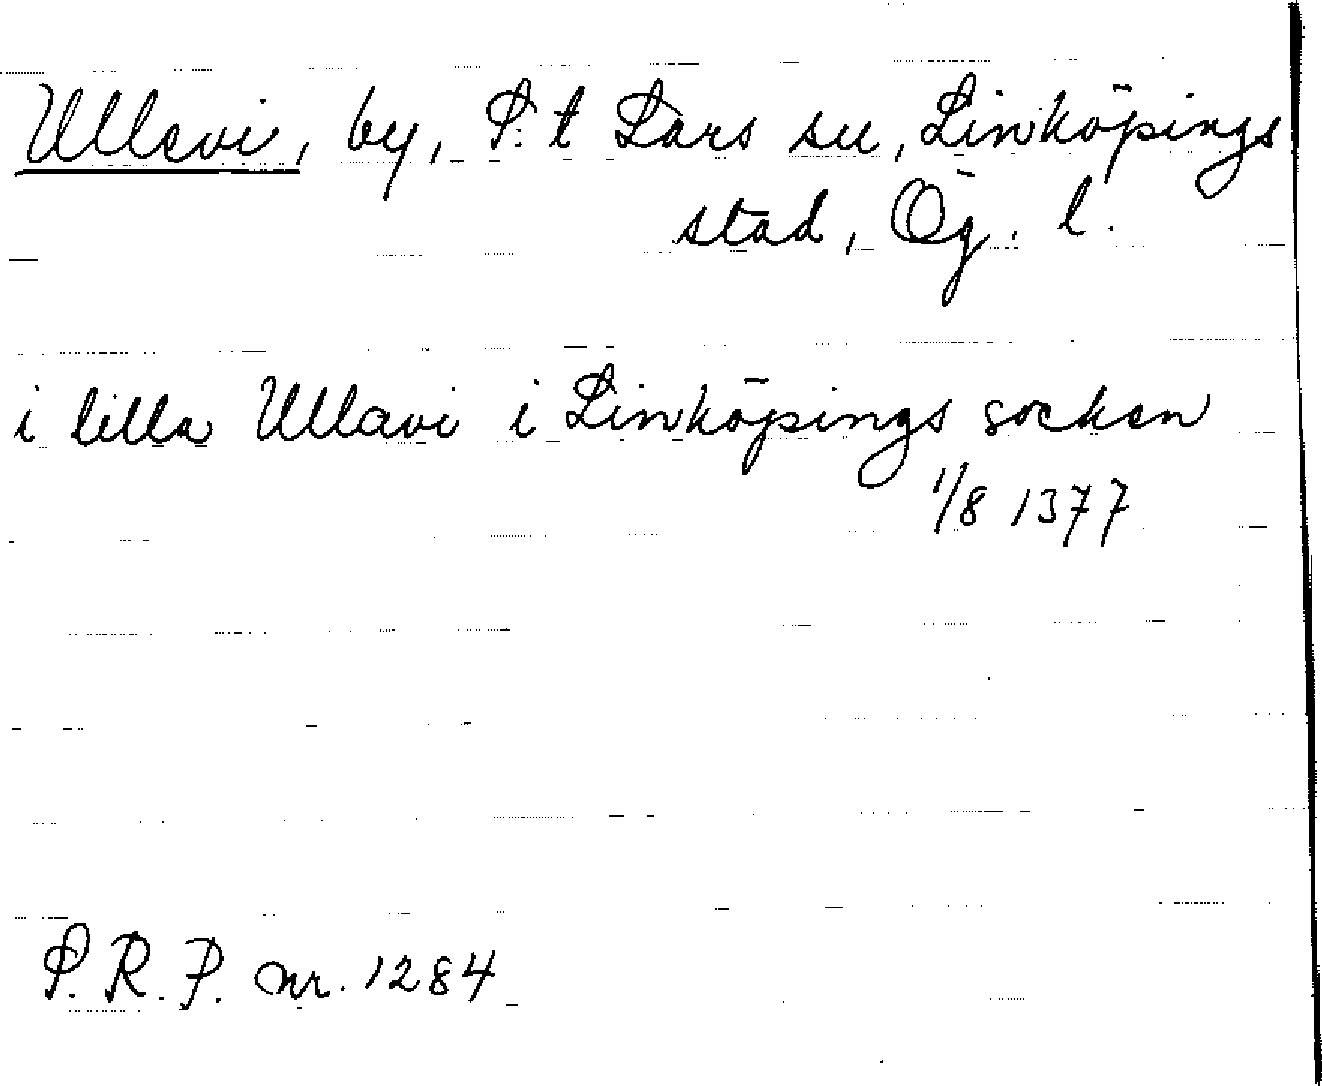 Ullevi, by, S:t Lars sn, Linköpings
stad, Ög. l.
i lilla Ullavi i Linköpings socken
1/8 1377
S. R. P. nr. 1284